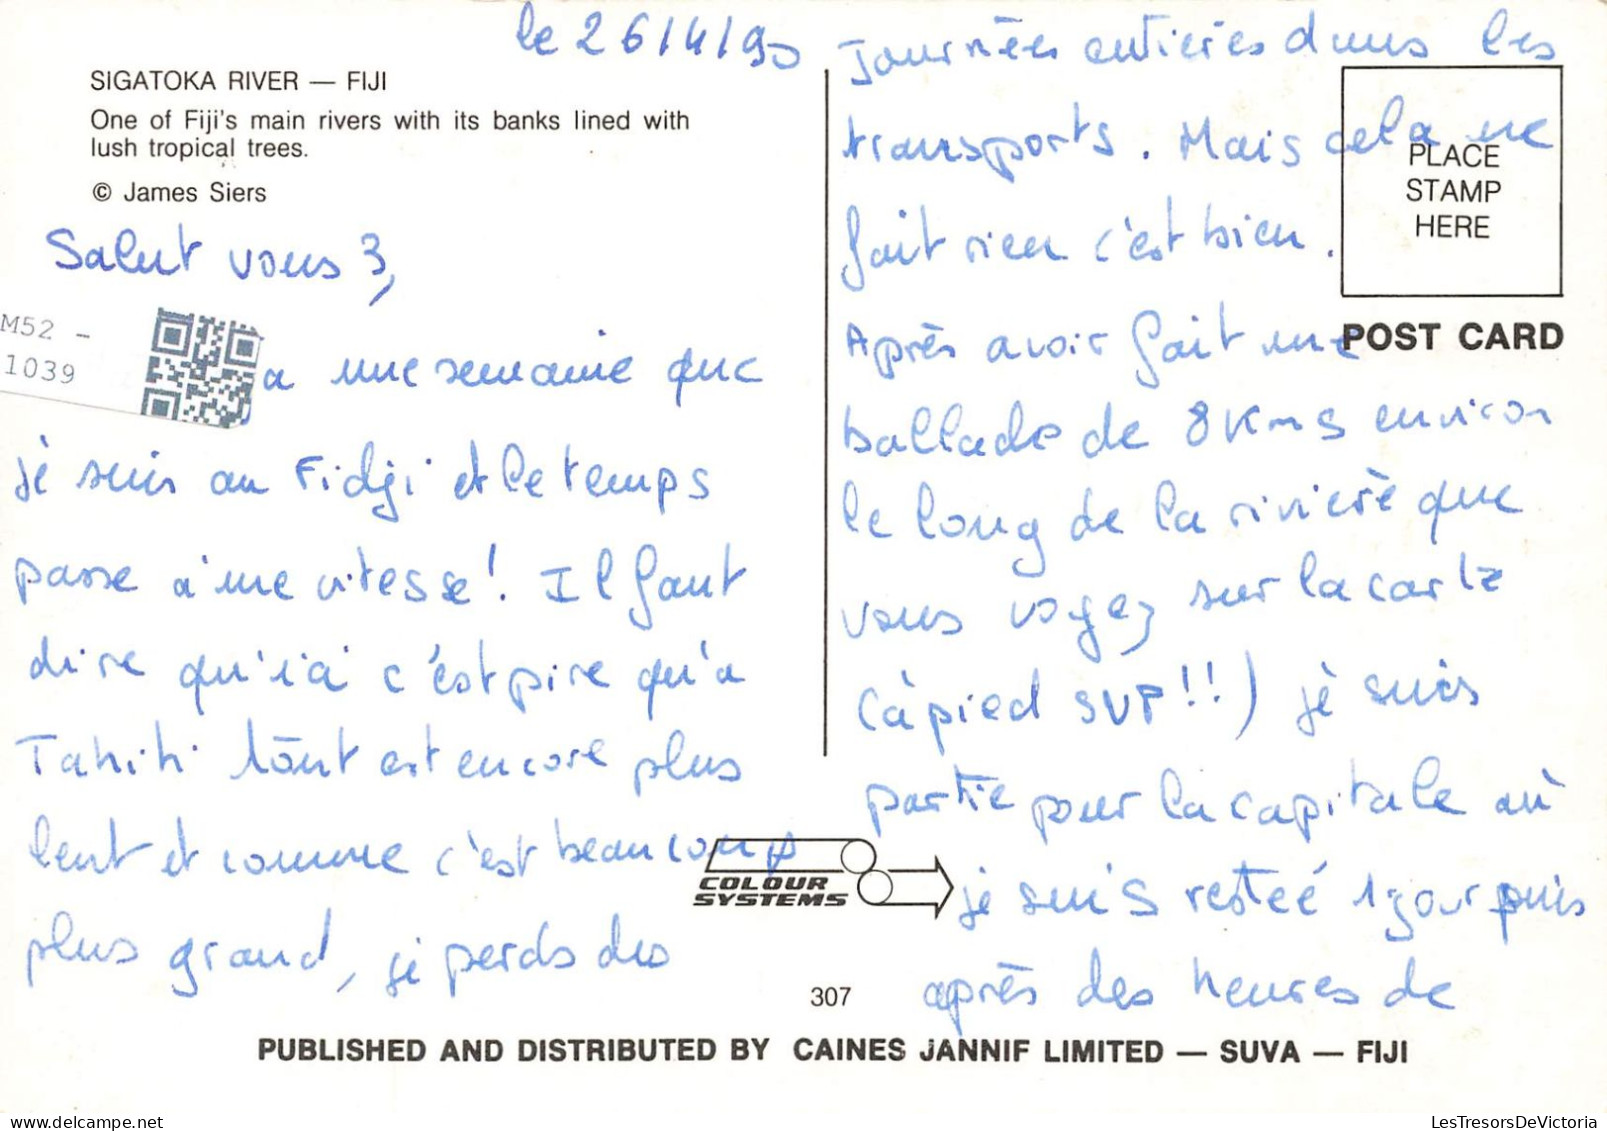 le 26/4/90
SIGATOKA RIVER — FIJI
One of Fiji's main rivers with its banks lined with
lush tropical trees.
© James Siers
Salut vous 3,
M52 -
1039
a une semaine que
je suis au Fidji et le temps
passe a' une vitesse! Il faut
dire qu'ici c'est pire qu'a
Tahiti tout est encore plus
lent et comme c'est beaucoup
plus grand, je perds des
journées entières dans les
transports. Mais cela ne
fait rien c'est bien.
Après avoir fait une
ballade de 8 Kms environ
le long de la rivière que
vous voyez sur la carte
(à pied SVP!!) je suis
partie pour la capitale où
je suis restée 1 jour puis
après des heures de
PLACE
STAMP
HERE
POST CARD
COLOUR
SYSTEMS
307
PUBLISHED AND DISTRIBUTED BY CAINES JANNIF LIMITED — SUVA — FIJI
LesTresorsDeVictoria